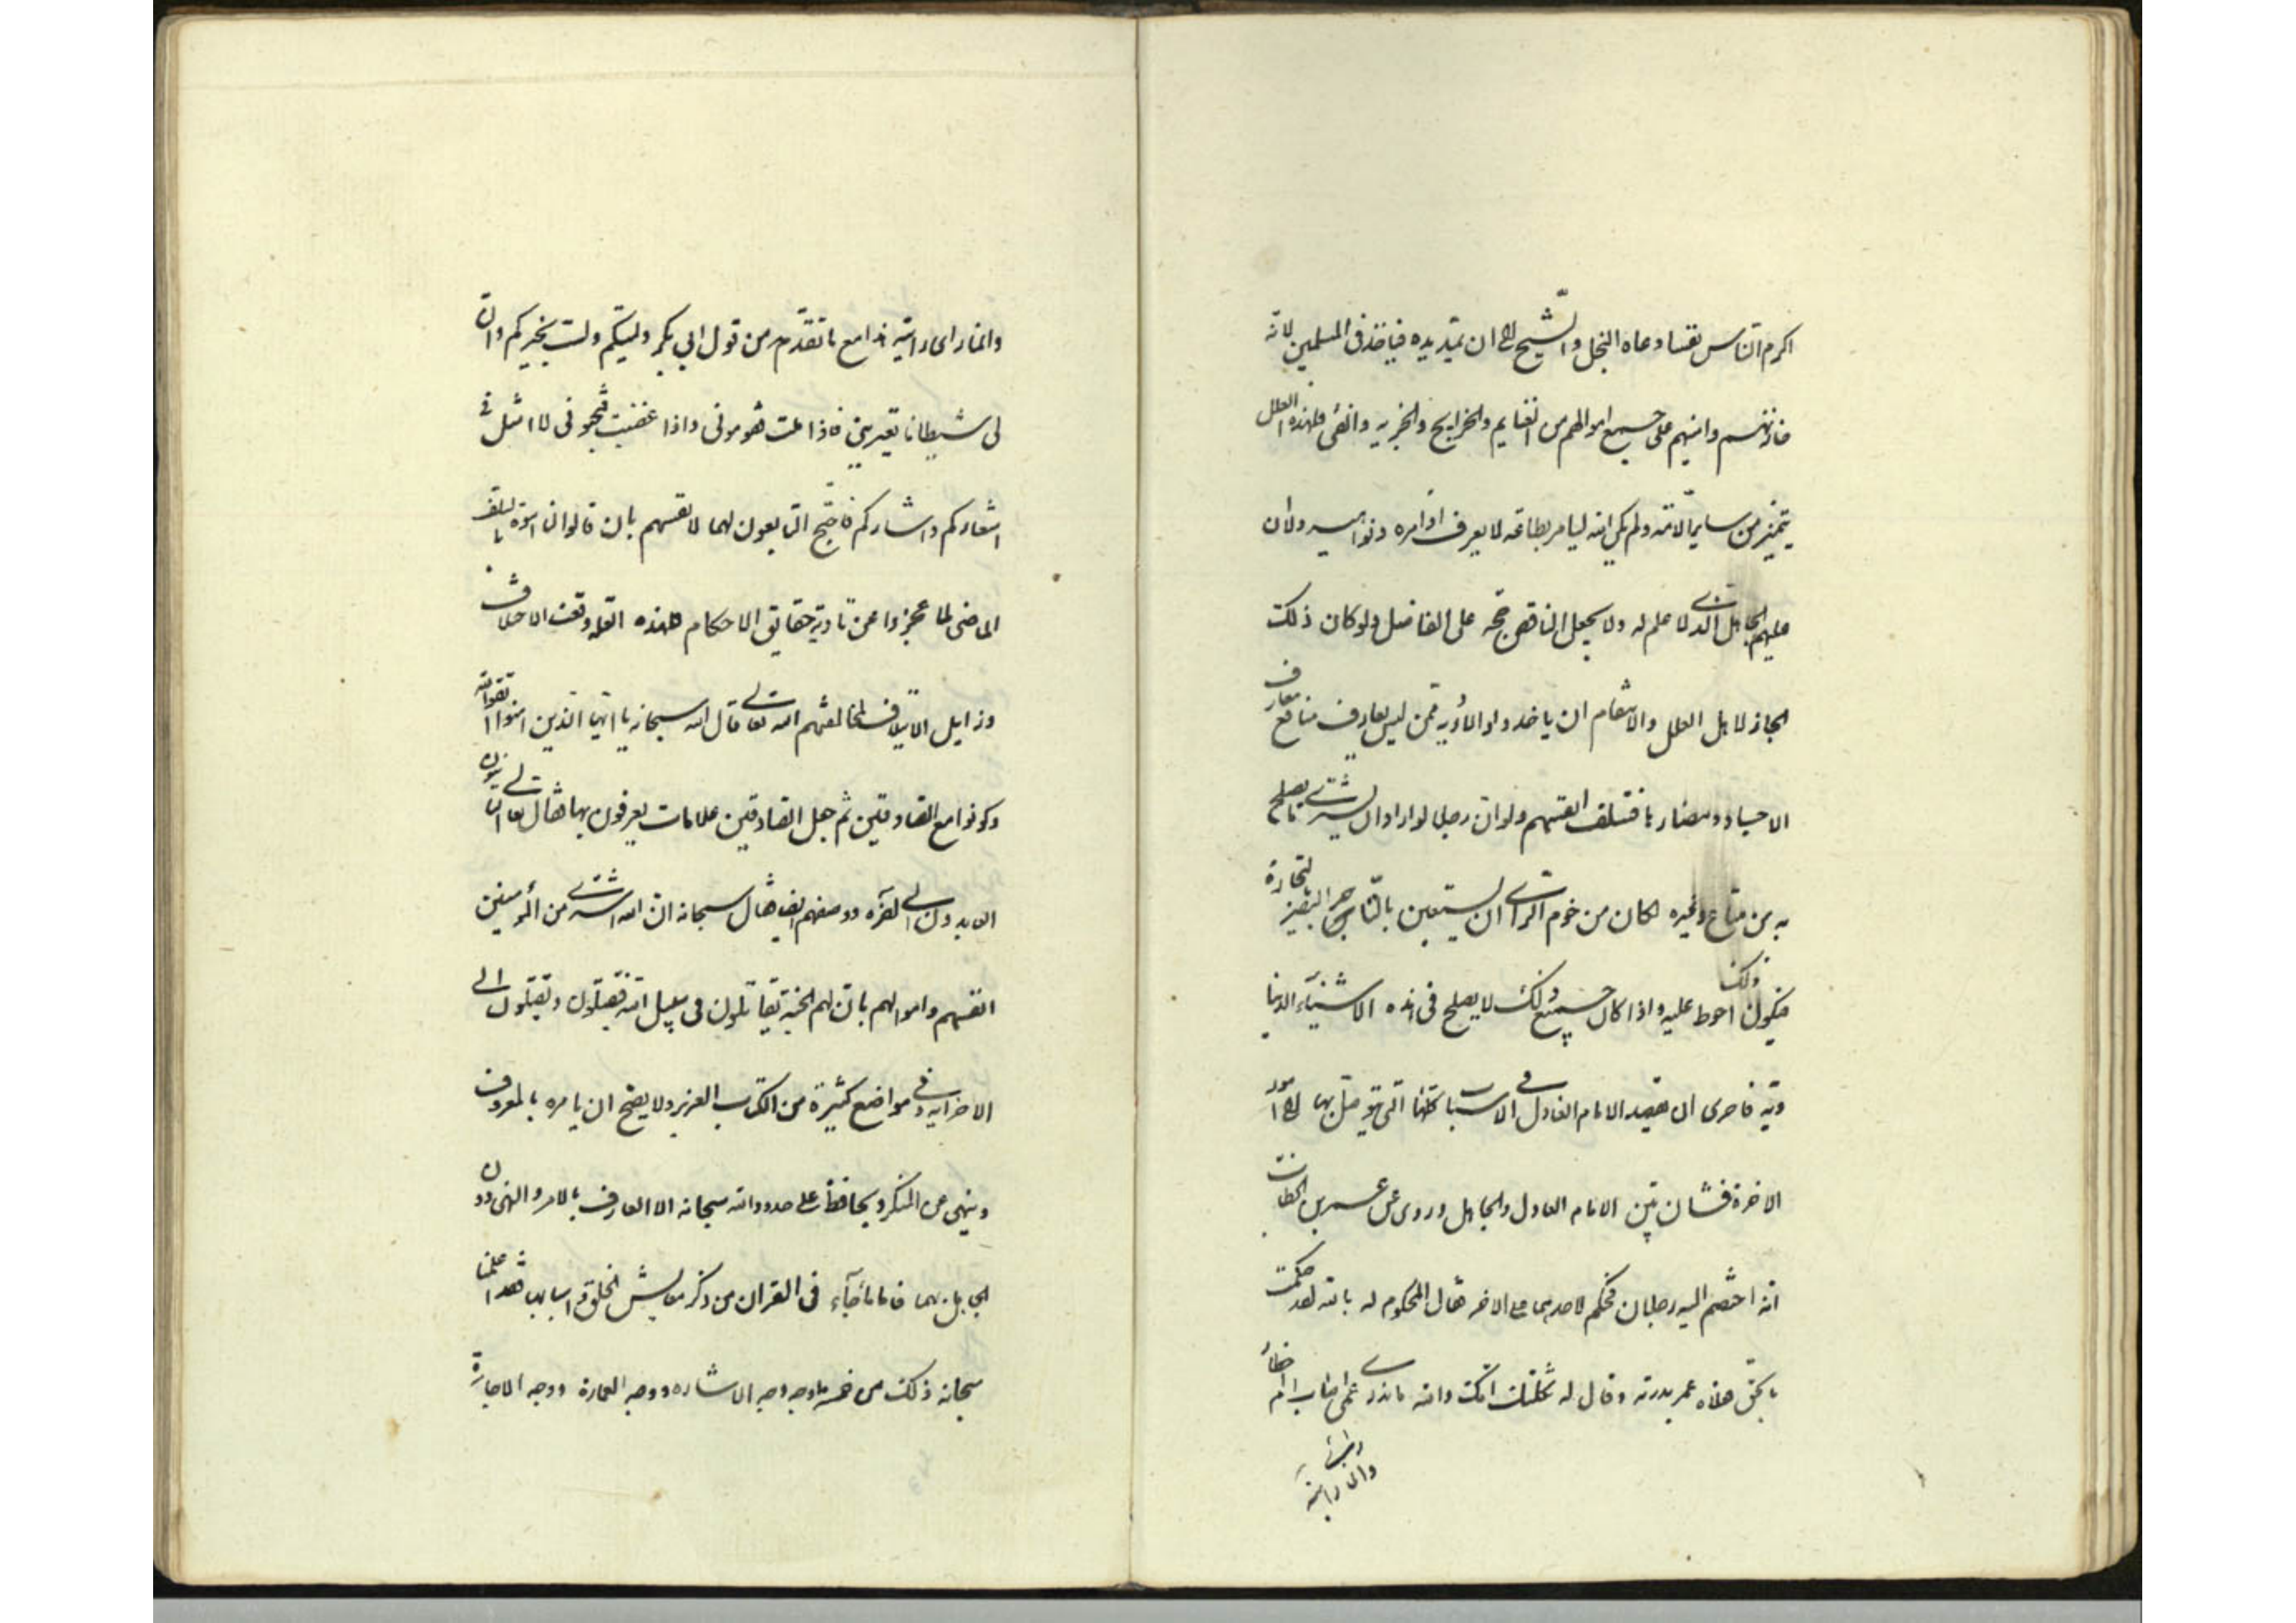 اكرم الناس نفسا دعاه البخل والشح الى ان تمتد يده فيأخذ فى المسلمين لانه
خازنهم وامينهم على جميع اموالهم من الغنايم والخرايج والجزيه والفئ فلهذه العلل
يتميز من سائر الامة ولم يكن الله ليامر بطاعة من لا يعرف اوامره ونواهيه ولا ان
عليهم الجاهل الذى لا علم له ولا يجعل الناقص حجة على الفاضل ولو كان ذلك
لجاز لاهل العلل والاسقام ان ياخذوا الادوية ممن ليس بعارف منافع
الاجساد ومضارها فتتلف انفسهم ولو ان رجلا لو اراد ان يشترى ما يصلح
به من متاع وغيره لكان من حزم الراى ان يستعين بالتاجر البصير التجارة
فيكون ذلك احوط عليه واذا كان جميع ذلك لا يصلح فى هذه الاشياء الدنيا
وية فاحرى ان يقصد الامام العادل فى الاسباب كلها التى يتوصل بها الى امور
الاخرة فشتان بين الامام العادل والجاهل وروى عن عمر بن الخطاب
انه اختصم اليه رجلان فحكم لاحدهما على الاخر فقال المحكوم له بالله لقد حكمت
بالحق فعلاه عمر بدرته وقال له ثكلتك امك والله ما يدرى عمر اصاب ام اخطأ
وانما راى رايته
وانما راى رايته هذا مع ما تقدم من قول ابى بكر وليتكم ولست بخيركم وان
لى شيطانا يعترينى فاذا ملت فقومونى واذا غضبت فجنبونى لا امثل فى
اشعاركم وابشاركم فاحتج التابعون لهما لانفسهم بان قالوا لنا اسوة بالسلف
الماضى لما عجزوا عن تادية حقايق الاحكام فلهذه العلة وقعت الاختلاف
وزايل الايتلاف لمخالفتهم الله تعالى قال الله سبحانه يا ايها الذين امنوا اتقوا الله
وكونوا مع الصادقين ثم جعل للصادقين علامات يعرفون بها فقال تعالى التائبون
العابدون الى آخره ووصفهم ايضا فقال سبحانه ان الله اشترى من المؤمنين
انفسهم واموالهم بان لهم الجنة يقاتلون فى سبيل الله فيقتلون ويقتلون الى
الاخر ايه فى مواضع كثيرة من الكتاب العزيز ولا يصح ان يامره بالمعروف
وينهى عن المنكر ويحافظ على حدود الله سبحانه الا العارف بالامر والنهى دون
الجاهل بهما فاما ما جآء فى القران من ذكر معايش الخلق واسبابها فقد اعلمنا
سبحانه ذلك من خمسة اوجه وجه الاشاره ووجه العمارة ووجه الاجارة